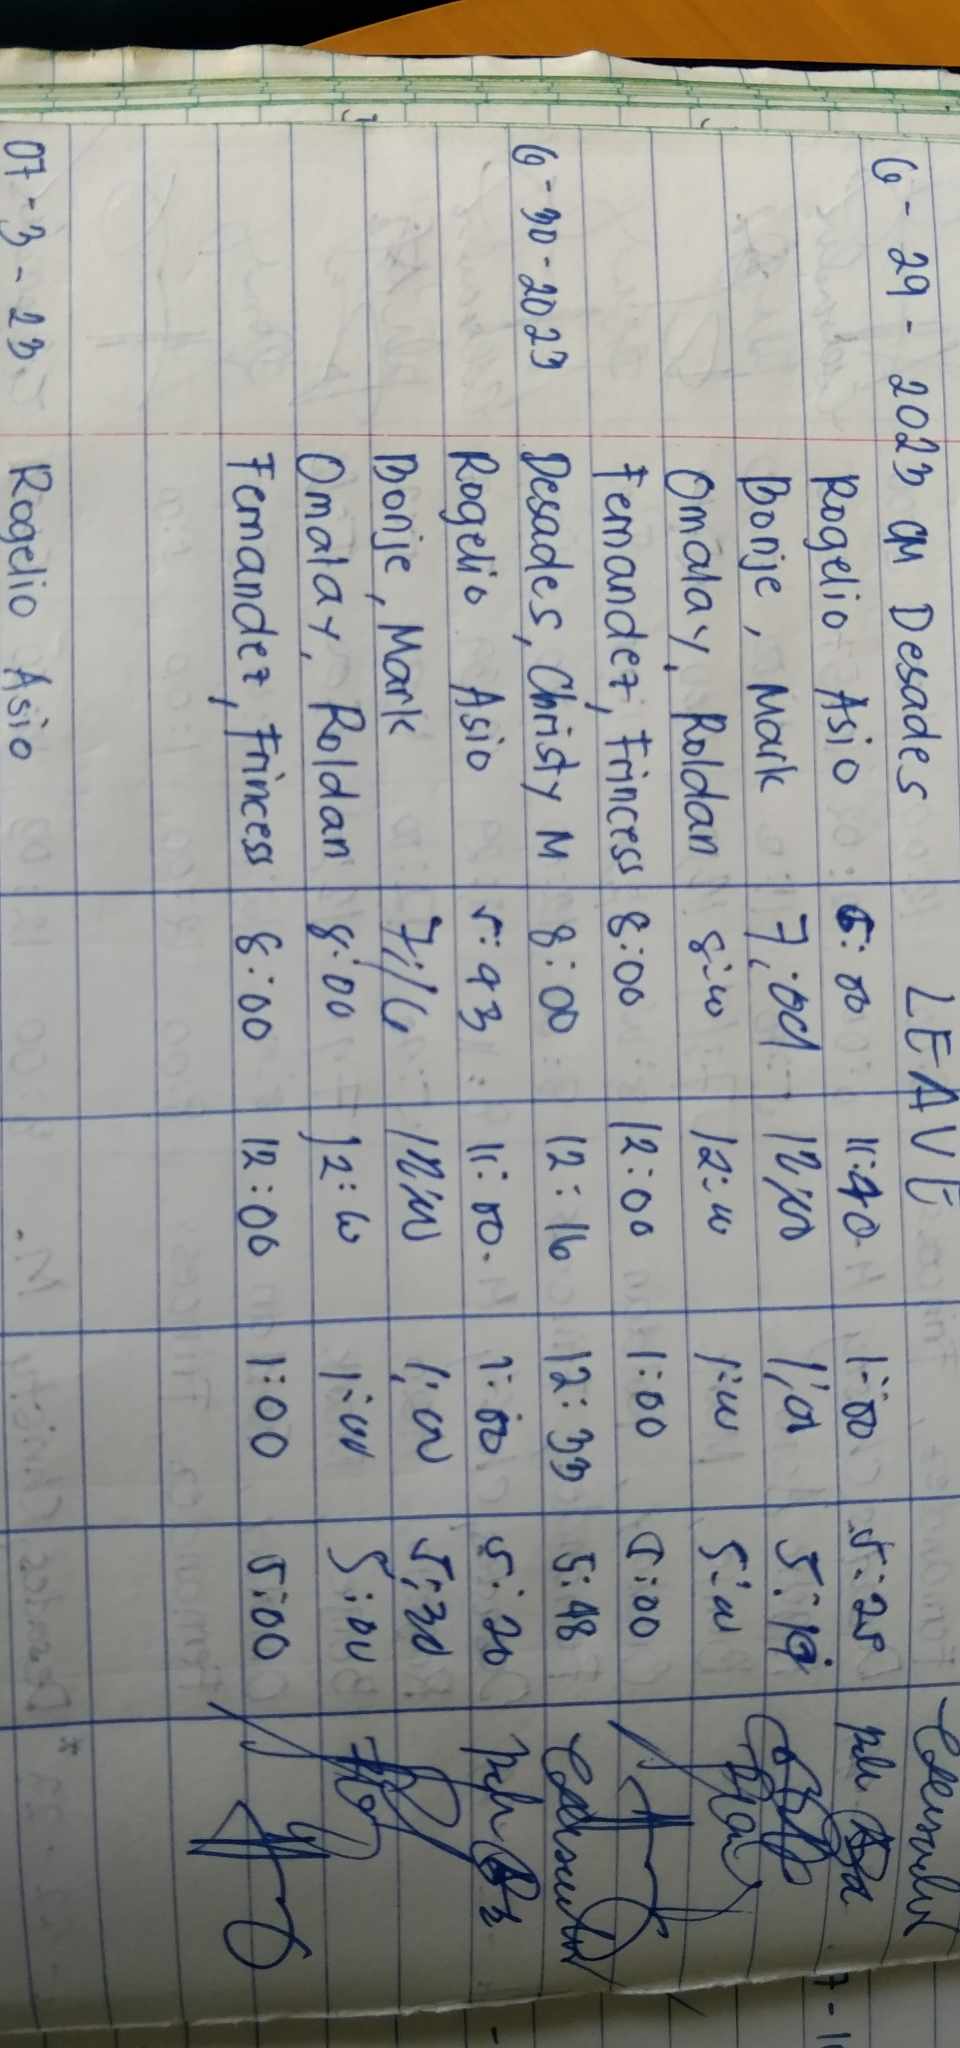 6 - 29 - 2023 CM Desades LEAVE
Rogelio Asio 6:00 11:40 1:00 5:20
Bonje, Mark 7:01 12:00 1:01 5:19
Omalay, Roldan 8:00 12:00 1:00 5:00
Fernandez, Frincess 8:00 12:00 1:00 5:00
6-30-2023 Desades, Christy M 8:00 12:16 12:33 5:48
Rogelio Asio 5:43 11:00 1:00 5:20
Bonje, Mark 7:16 12:00 1:00 5:30
Omalay, Roldan 8:00 12:00 1:00 5:00
Fernandez, Frincess 8:00 12:00 1:00 5:00
07-3-23 Rogelio Asio